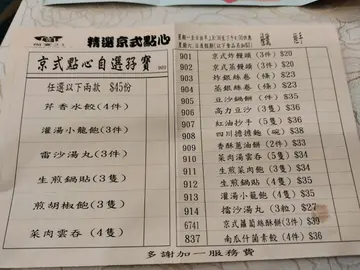 精選京式點心
京式點心自選孖寶
任選以下兩款 $45份
芹香水餃(4件)
灌湯小籠飽(3件)
雷沙湯丸(3件)
生煎鍋貼(3隻)
煎胡椒飽(3隻)
菜肉雲吞(4隻)
901 京式炸饅頭(3件) $20
902 京式蒸饅頭(3件) $20
903 炸銀絲卷(條) $20
904 蒸銀絲卷(條) $20
905 豆沙鍋餅(件) $35
906 高力豆沙(3隻) $36
907 紅油抄手(5隻) $36
908 四川擔擔麵(碗) $38
909 香酥蔥油餅(2件) $33
910 菜肉湯雲吞(5隻) $34
911 生煎飽(3隻) $34
912 生煎鍋貼(4隻) $34
913 灌湯小籠飽(4隻) $35
914 擂沙湯丸(3粒) $27
6741 京式蘿蔔絲酥餅(3件) $39
837 南瓜什菌素餃(4件) $36
多謝加一服務費